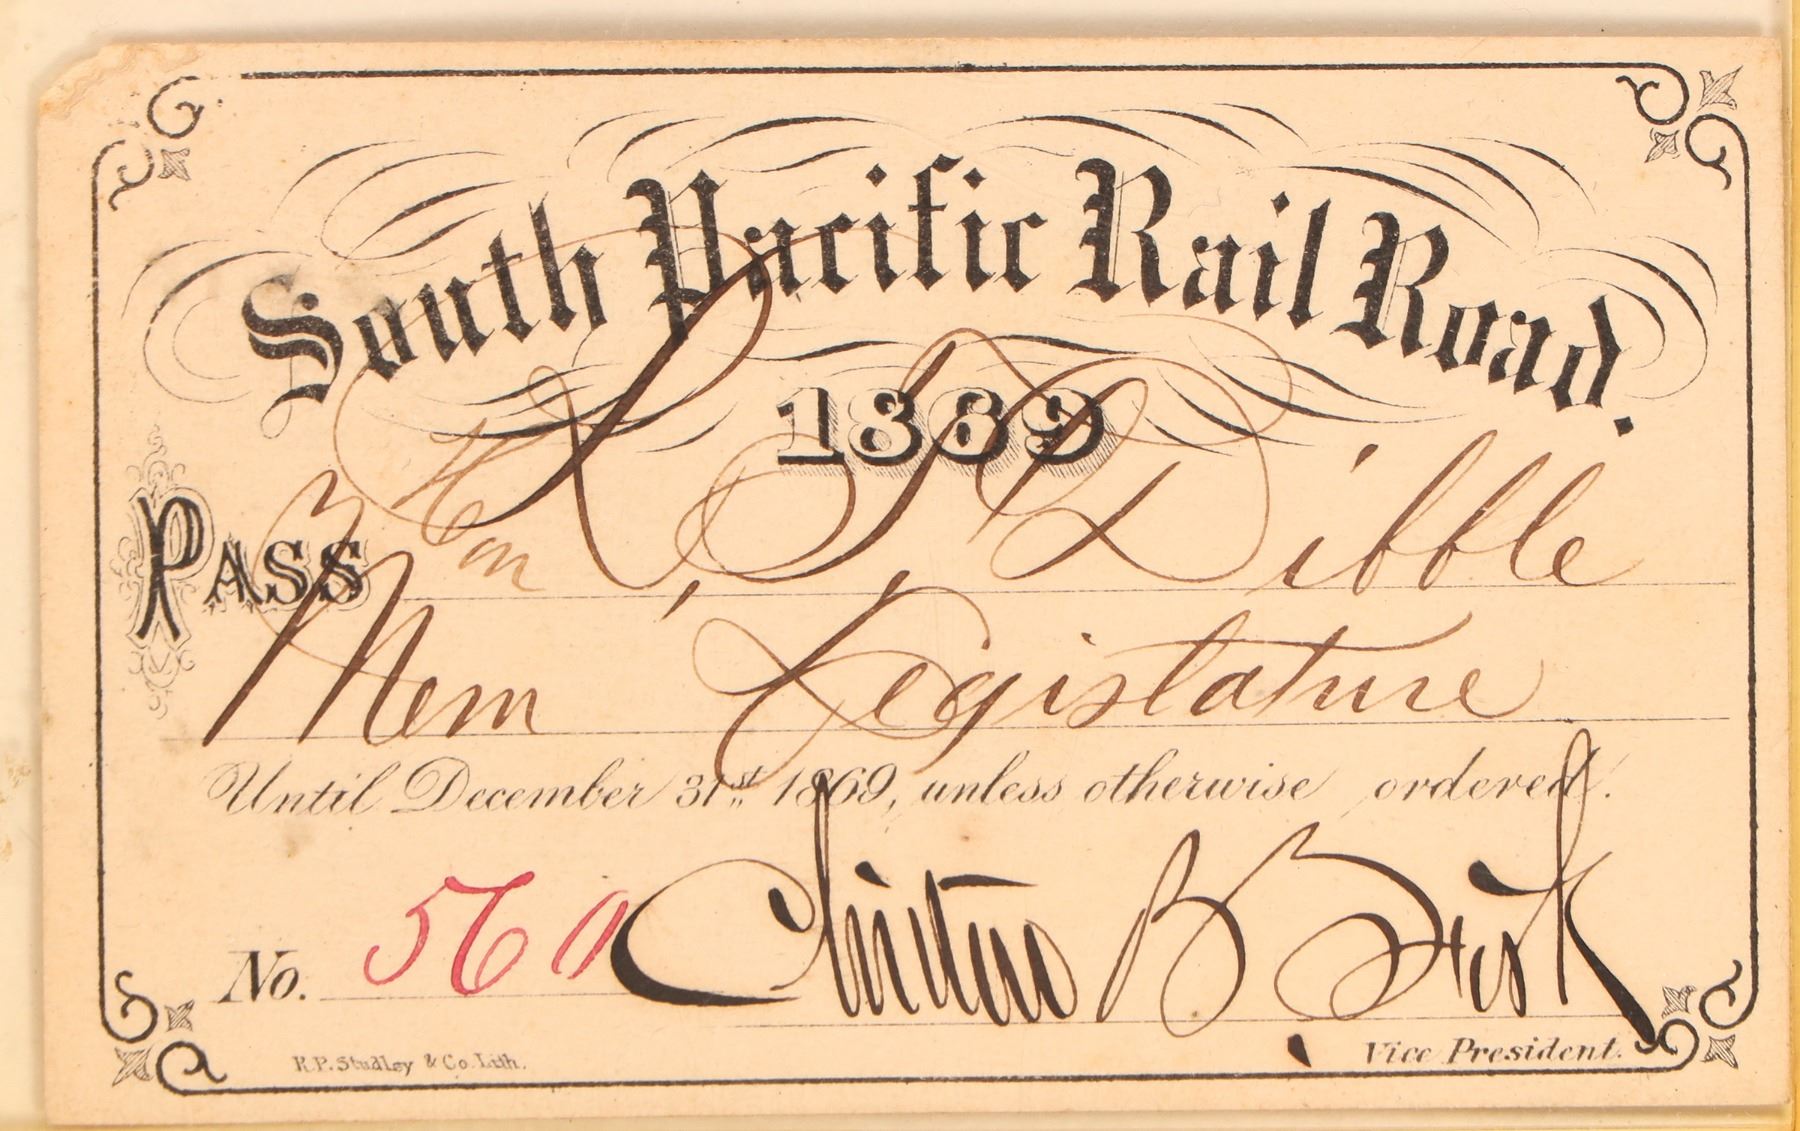 South Pacific Rail Road.
1869
Pass Hon L, S, Dibble
Mem Legislature
Until December 31st 1869, unless otherwise ordered.
No. 560 Clinton B Fisk
Vice President.
R.P. Studley & Co. Lith.